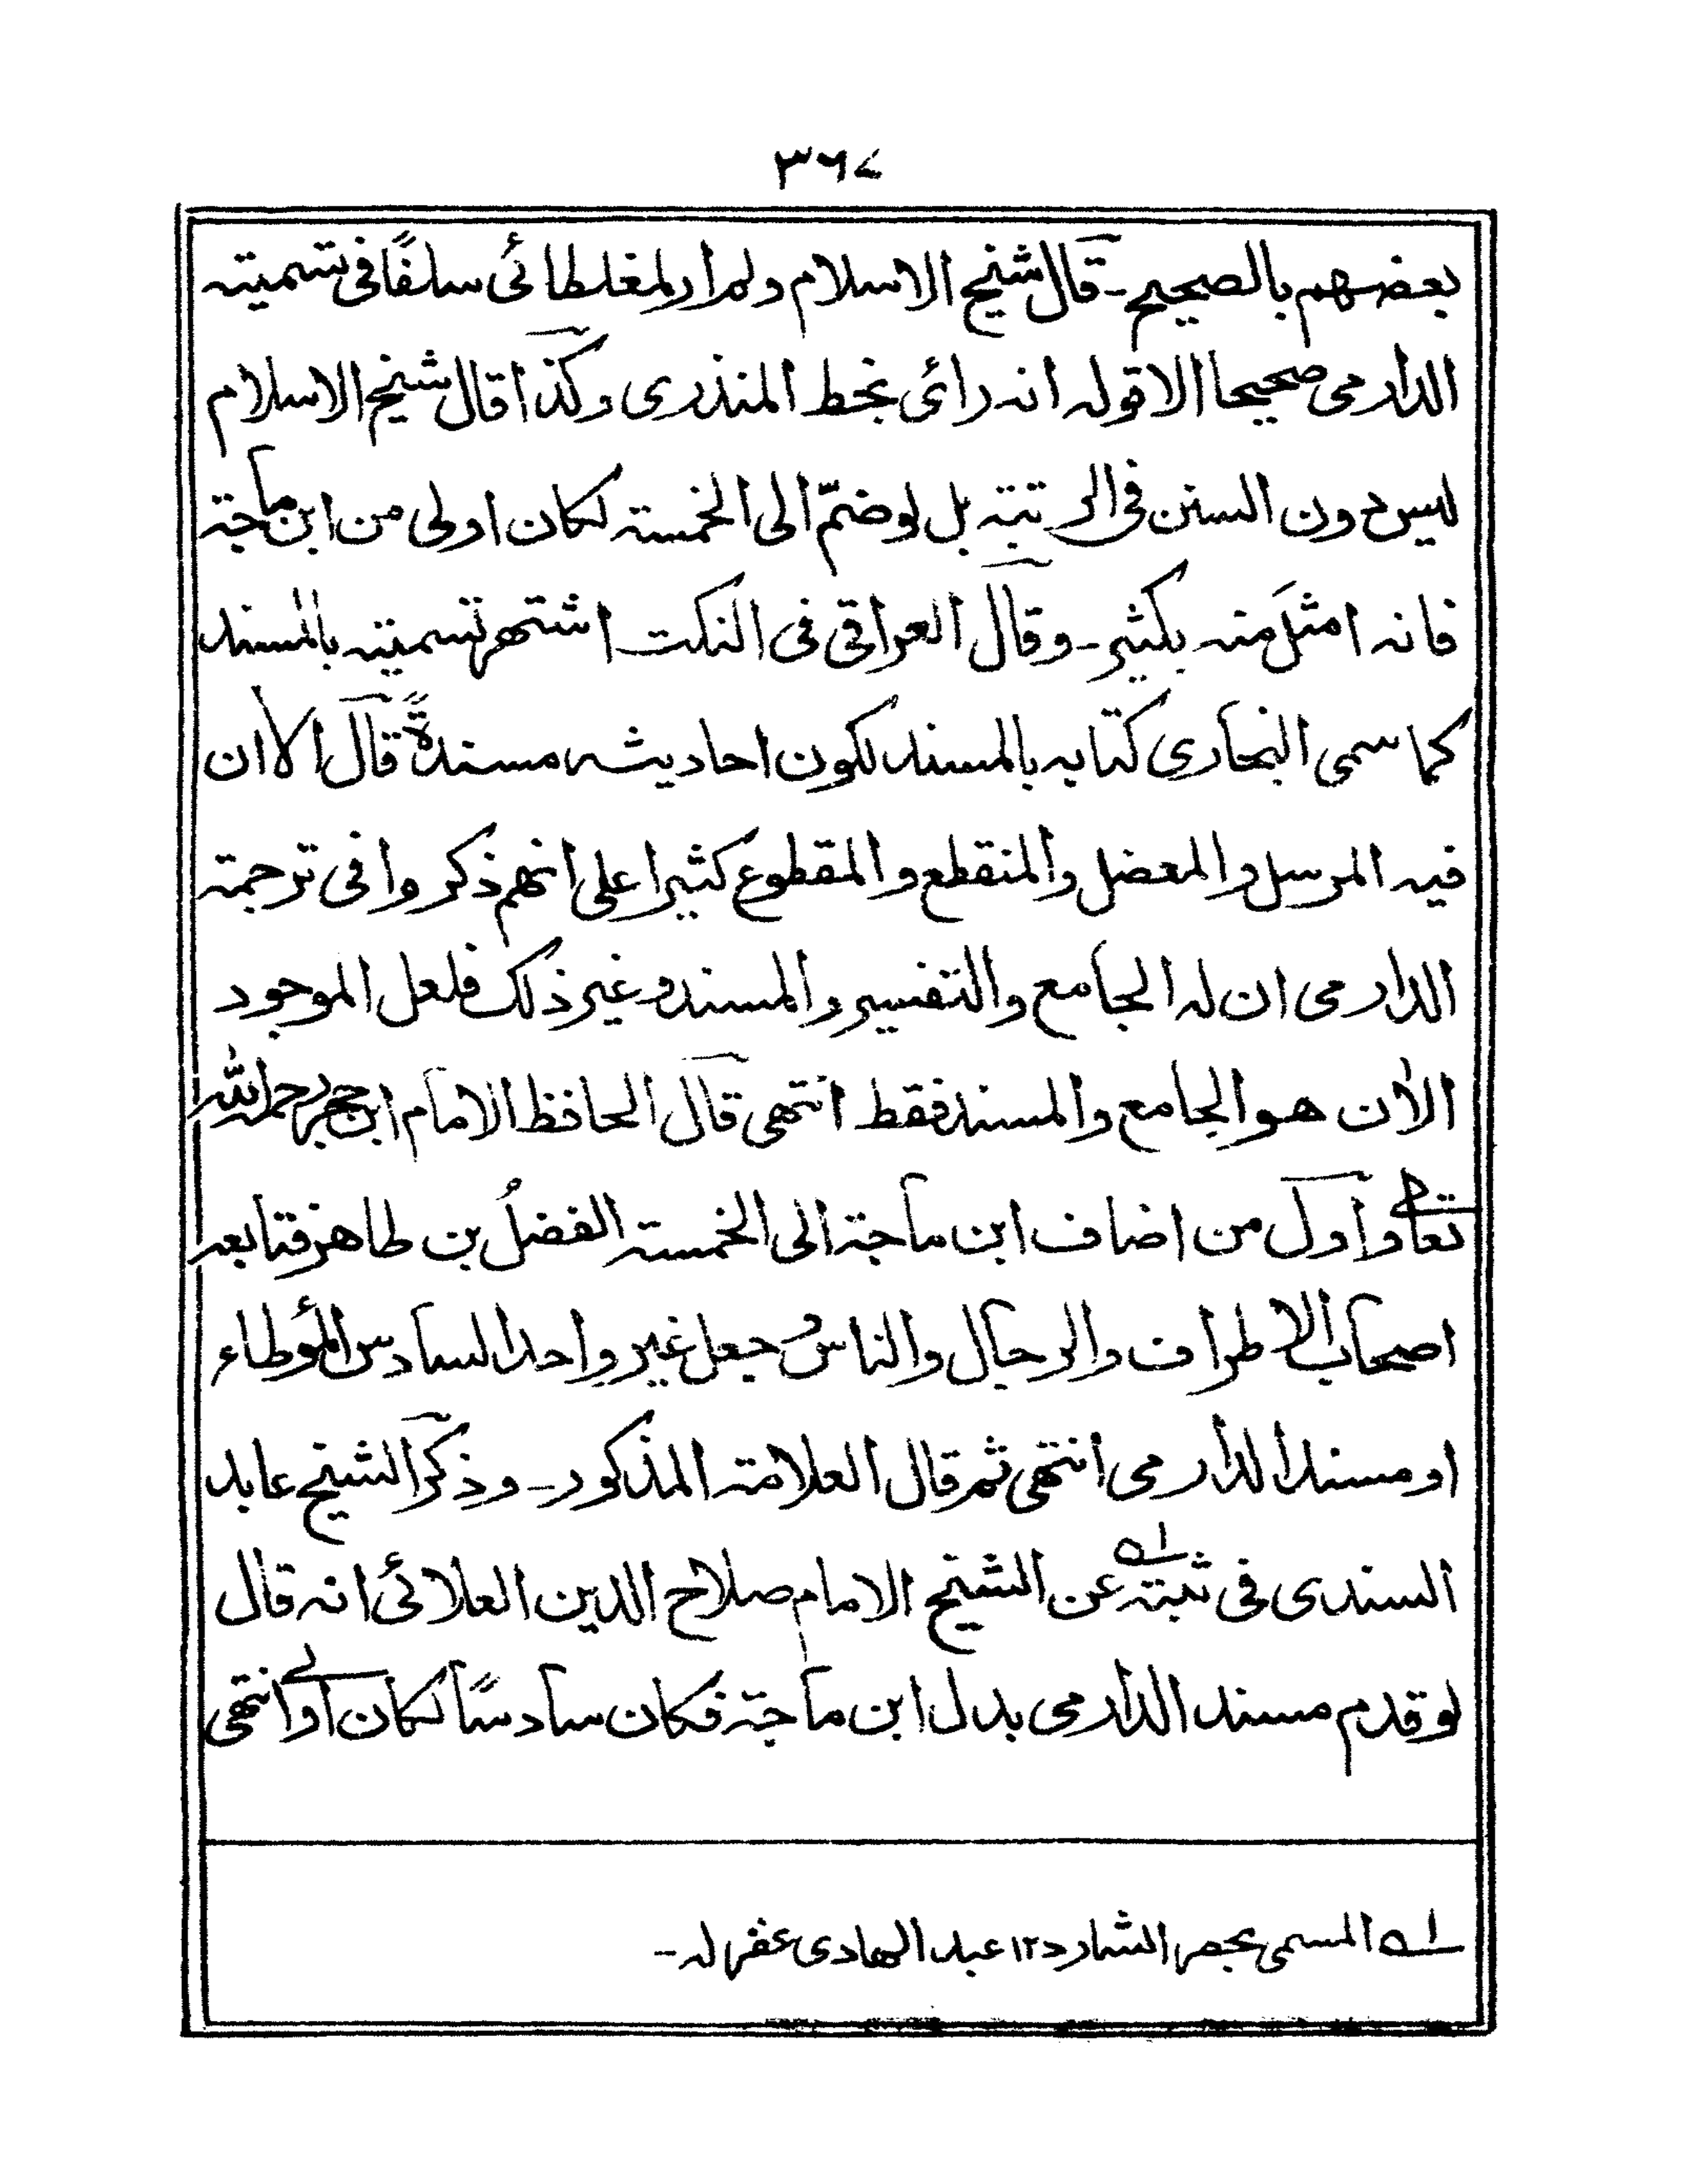 ٣٦٧
بعضهم بالصحيح ـ قال شيخ الاسلام ولم ار لمغلطائى سلفًا فى تسميته
الدارمى صحيحا الا قوله انه رائى بخط المنذرى وكذا قال شيخ الاسلام
ليس دون السنن فى الرتبته بل لو ضمّ الى الخمسته لكان اولى من ابن ماجة
فانه امثل منه بكثير ـ وقال العراقى فى النكت اشتهر تسميته بالمسند
كما سمى البخارى كتابه بالمسند لكون احاديثه مسندةً قال الا ان
فيه المرسل والمعضل والمنقطع والمقطوع كثيرا على انهم ذكروا فى ترجمة
الدارمى ان له الجامع والتفسير والمسند وغير ذلك فلعل الموجود
الأن هو الجامع والمسند فقط انتهى قال الحافظ الامام ابن حجر رحمه الله
تعالى واول من اضاف ابن ماجة الى الخمسته الفضلُ بن طاهر فتابعه
اصحاب الاطراف والرجال والناسُ جعل غير واحد السادس المؤطاء
او مسند الدارمى انتهى ثم قال العلامة المذكور ـ وذكر الشيخ عابد
السندى فى ثبته لـه عن الشيخ الامام صلاح الدين العلائى انه قال
لو قدم مسند الدارمى بدل ابن ماجة فكان سادسًا لكان اولى انتهى
لـه المسمى بحصر الشارد ١٢ عبد الهادى غفر له ـ